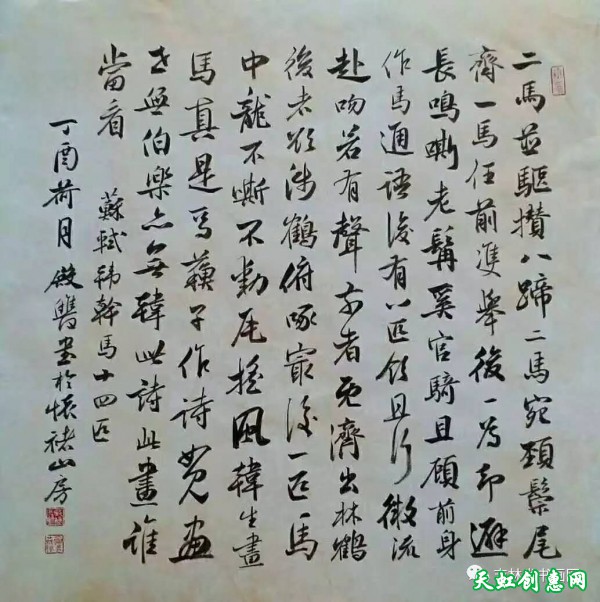 二馬並驅攢八蹄二馬宛頸鬃尾
齊一馬任前雙舉後一馬却避
長鳴嘶老髯奚官騎且顧前身
作馬通語後有八匹飲且行微流
赴吻若有聲前者既濟出林鶴
後者欲涉鶴俯啄最後一匹馬
中龍不嘶不動尾搖風韓生畫
馬真是馬蘇子作詩如見畫
世無伯樂亦無韓此詩此畫誰
當看
蘇軾韓幹馬十四匹
丁酉荷月書於懷褚山房
天虹创惠网